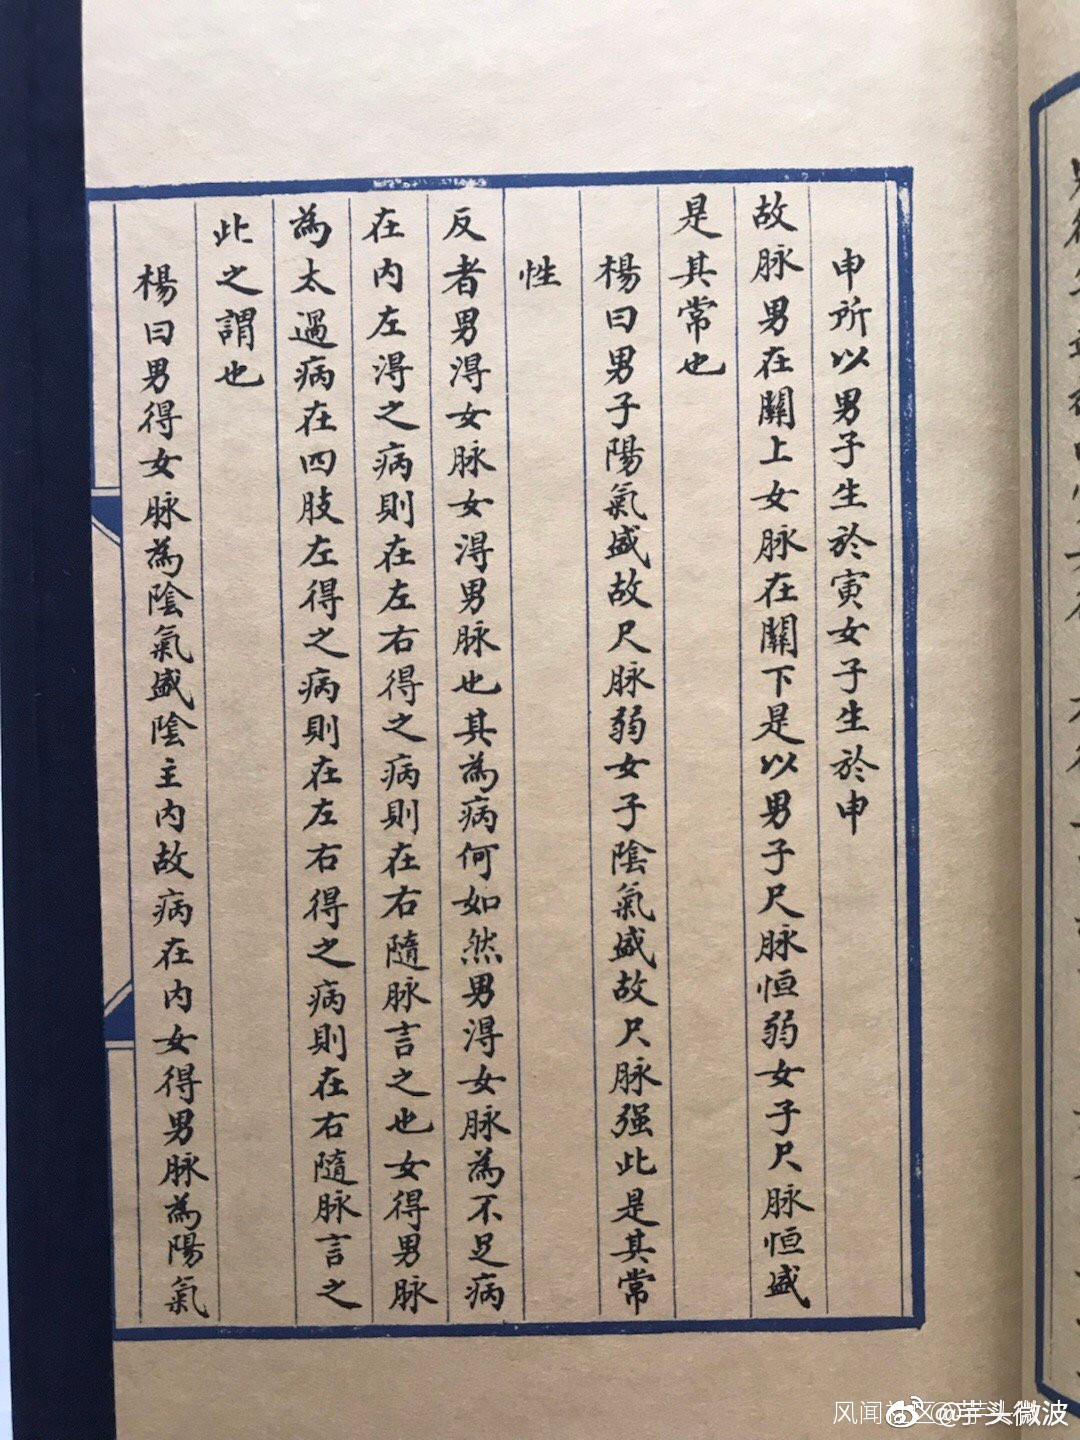 申所以男子生於寅女子生於申
故脉男在關上女脉在關下是以男子尺脉恒弱女子尺脉恒盛
是其常也
楊曰男子陽氣盛故尺脉弱女子陰氣盛故尺脉强此是其常
性
反者男淂女脉女淂男脉也其為病何如然男淂女脉為不足病
在内左淂之病則在左右得之病則在右隨脉言之也女得男脉
為太過病在四肢左得之病則在左右得之病則在右隨脉言之
此之謂也
楊曰男得女脉為陰氣盛陰主内故病在内女得男脉為陽氣
风闻社区
@芋头微波